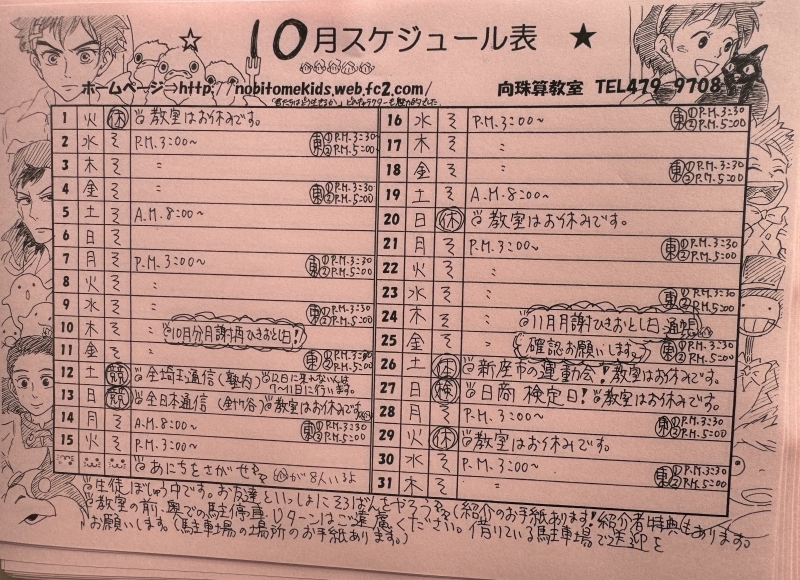 10月スケジュール表
ホームページ⇒http://nobitomekids.web.fc2.com/ 向珠算教室 TEL479-9708
1 火 休 教室はお休みです。
2 水 そ P.M.3:00~ 東①P.M.3:30 ②P.M.5:00
3 木 そ 〃
4 金 そ 〃 東①P.M.3:30 ②P.M.5:00
5 土 そ A.M.8:00~
6 日 そ
7 月 そ P.M.3:00~ 東①P.M.3:30 ②P.M.5:00
8 火 そ 〃
9 水 そ 〃 東①P.M.3:30 ②P.M.5:00
10 木 そ 〃 10月分月謝再ひきおとし日!
11 金 そ 〃 東①P.M.3:30 ②P.M.5:00
12 土 競 全埼玉通信(塾内) 12日に来れない人は 7~11日に行います。
13 日 競 全日本通信(針ヶ谷) 教室はお休みです。
14 月 そ A.M.8:00~ 東①P.M.3:30 ②P.M.5:00
15 火 そ P.M.3:00~
あにちをさがせ が8人いるよ
16 水 そ P.M.3:00~ 東①P.M.3:30 ②P.M.5:00
17 木 そ 〃
18 金 そ 〃 東①P.M.3:30 ②P.M.5:00
19 土 そ A.M.8:00~
20 日 休 教室はお休みです。
21 月 そ P.M.3:00~ 東①P.M.3:30 ②P.M.5:00
22 火 そ 〃
23 水 そ 〃 東①P.M.3:30 ②P.M.5:00
24 木 そ 〃 11月月謝ひきおとし日 通帳
25 金 そ 〃 確認お願いします。 東①P.M.3:30 ②P.M.5:00
26 土 休 新座市の運動会!教室はお休みです。
27 日 検 日商 検定日!教室はお休みです。
28 月 そ P.M.3:00~ 東①P.M.3:30 ②P.M.5:00
29 火 休 教室はお休みです。
30 水 そ P.M.3:00~ 東①P.M.3:30 ②P.M.5:00
31 木 そ 〃
生徒ぼしゅう中です。お友達といっしょにそろばんをやろう(紹介のお手紙あります!紹介者特典もあります。
教室の前、奥での駐停車、Uターンはご遠慮ください。借りている駐車場で送迎を
お願いします。(駐車場の場所のお手紙あります。)